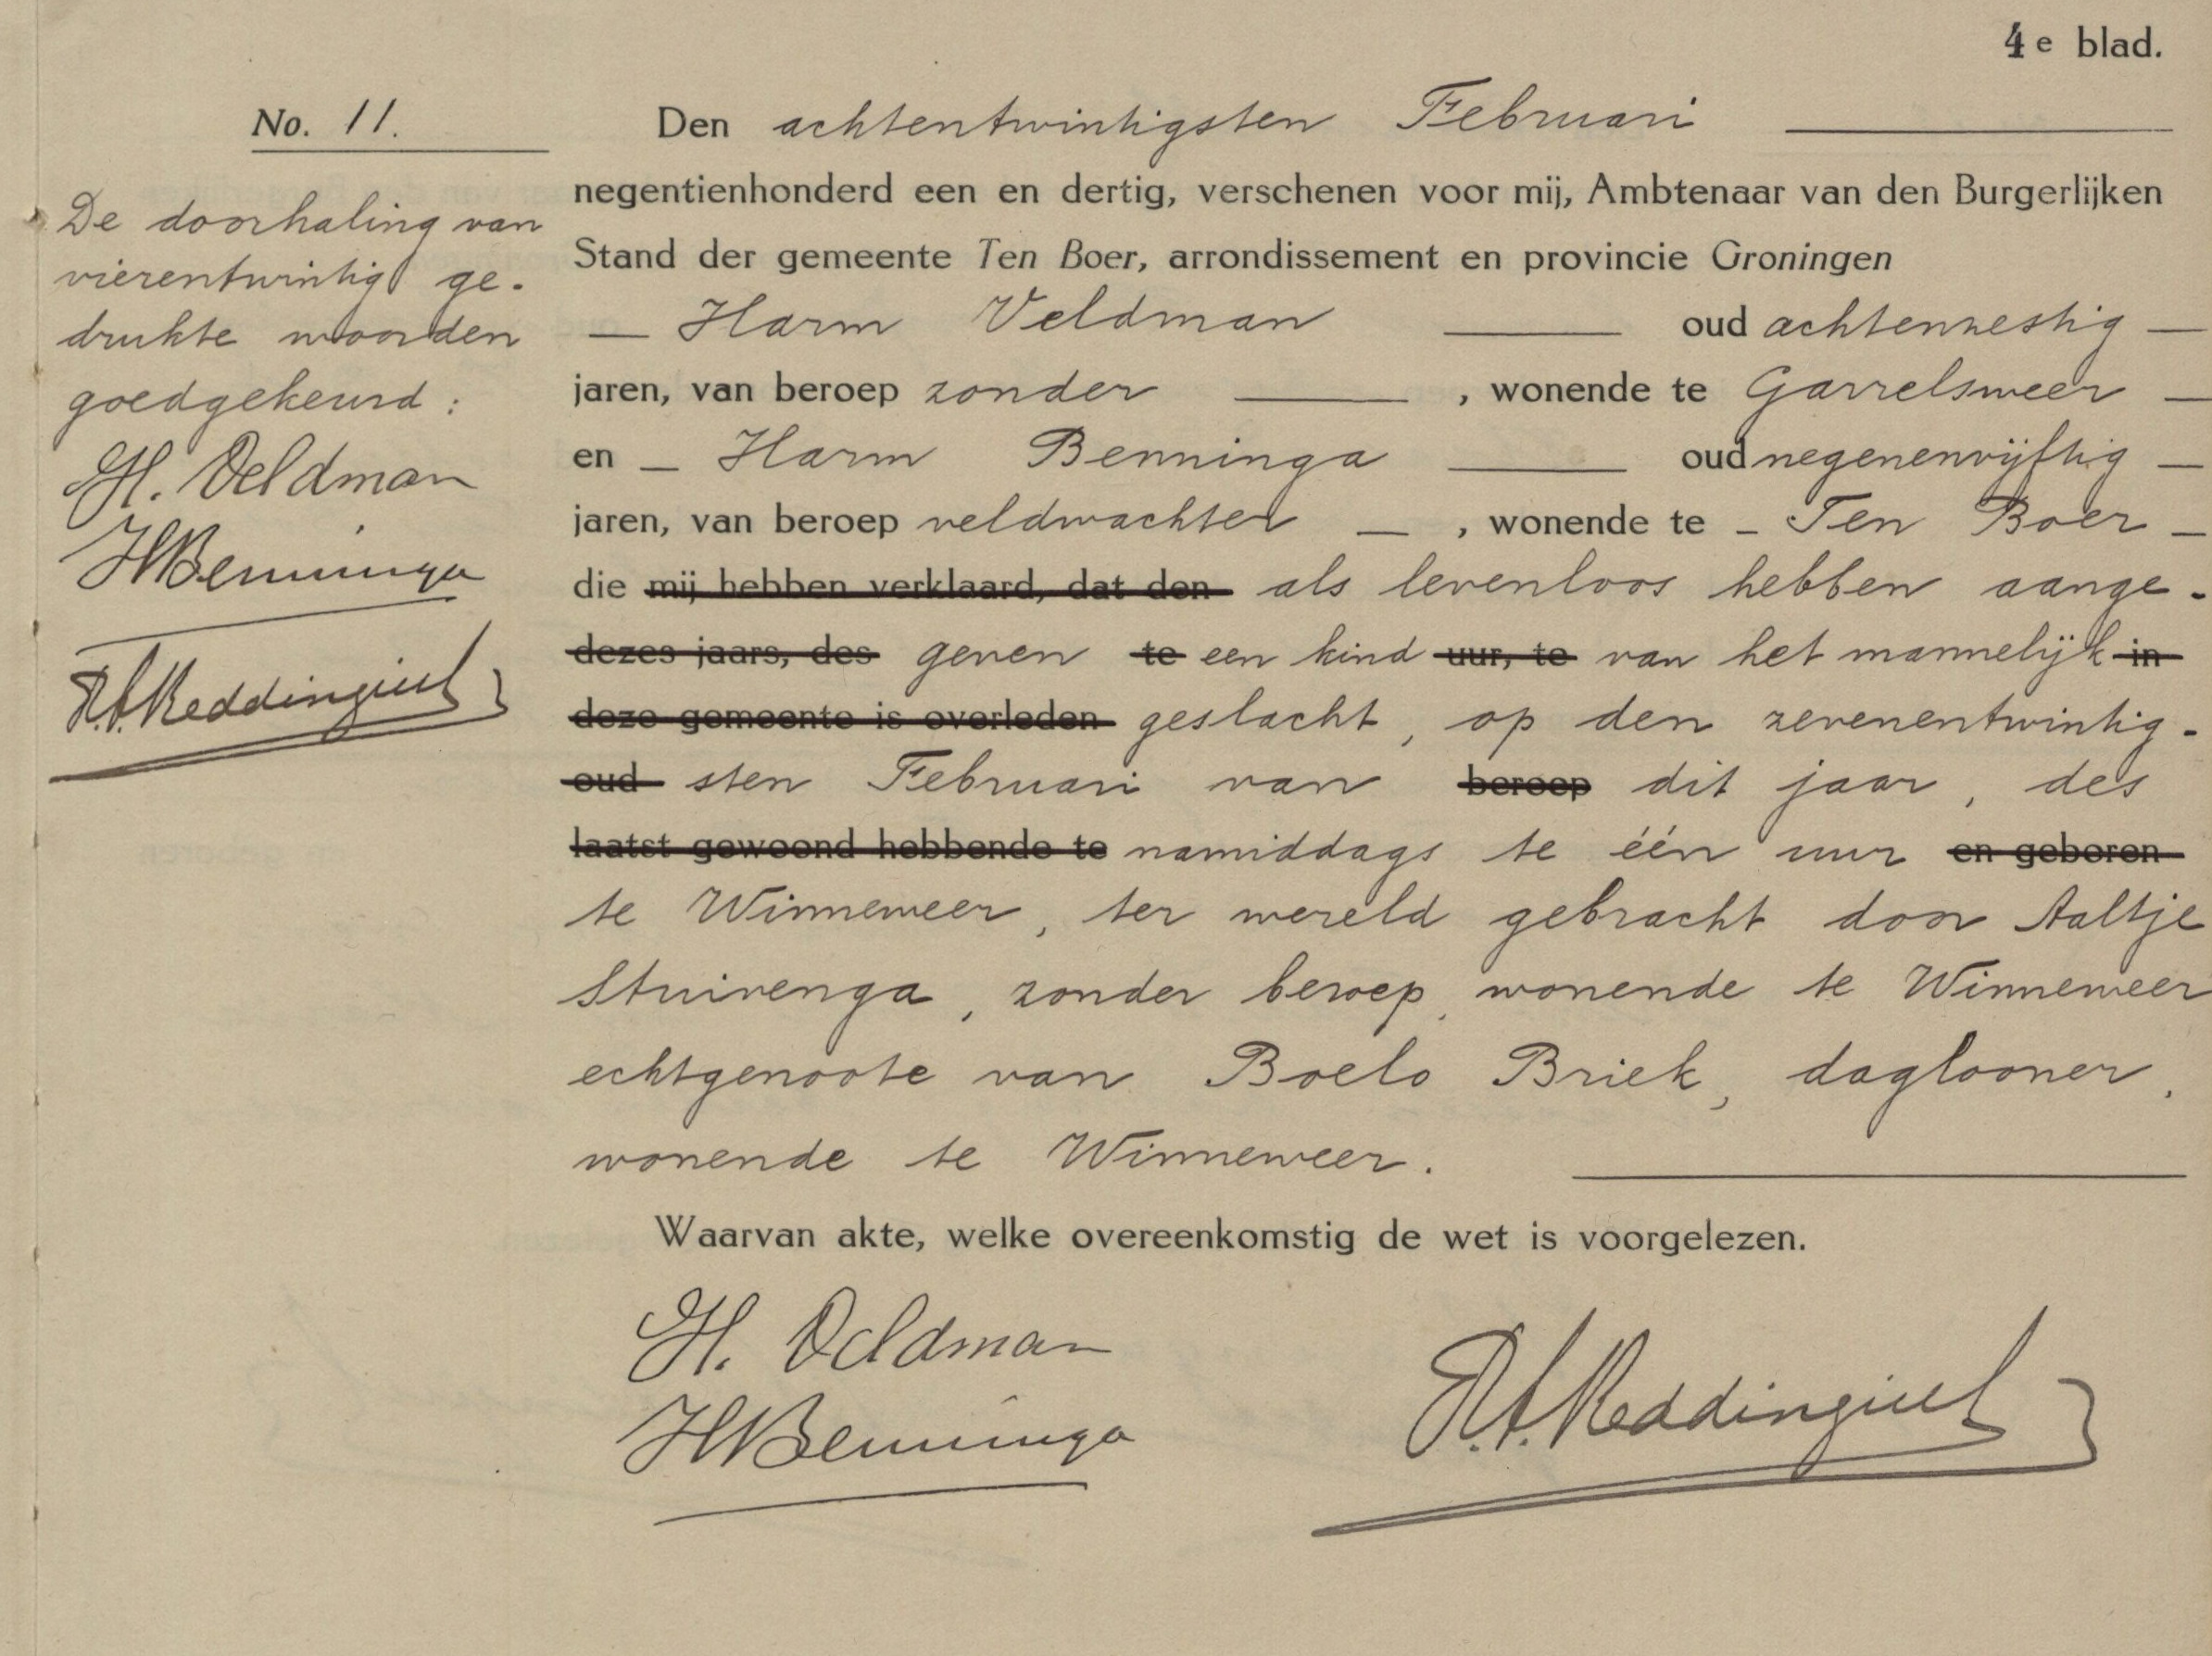 4e blad.
No. 11.
De doorhaling van
vierentwintig ge-
drukte woorden
goedgekeurd:
H. Veldman
HBenninga
Den achtentwintigsten Februari
negentienhonderd een en dertig, verschenen voor mij, Ambtenaar van den Burgerlijken
Stand der gemeente Ten Boer, arrondissement en provincie Groningen
— Harm Veldman — oud achtenzestig —
jaren, van beroep zonder —, wonende te Garrelsweer —
en — Harm Benninga — oud negenenvijftig —
jaren, van beroep veldwachter —, wonende te — Ten Boer —
die mij hebben verklaard, dat den als levenloos hebben aange-
dezes jaars, des geven te een kind uur, te van het mannelijk in
deze gemeente is overleden geslacht, op den zevenentwintig-
oud sten Februari van beroep dit jaar, des
laatst gewoond hebbende te namiddags te één uur en geboren
te Winneweer, ter wereld gebracht door Aaltje
Stuivenga, zonder beroep, wonende te Winneweer
echtgenoote van Boelo Briek, daglooner,
wonende te Winneweer.
Waarvan akte, welke overeenkomstig de wet is voorgelezen.
H. Veldman
HBenninga